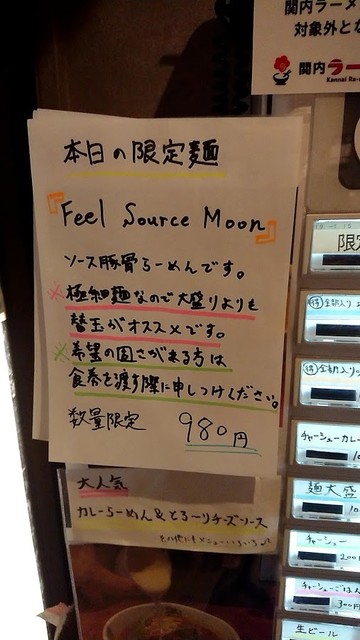 関内ラーメ
対象外とな
関内ラー
Kannai Ra-
本日の限定麺
『Feel Source Moon』
ソース豚骨らーめんです。
※極細麺なので大盛りよりも
替玉がオススメです。
※希望の固さがある方は
食券を渡す際に申しつけください。
数量限定 980円
大人気
カレーらーめん&とろ～りチーズソース
限定
チャーシューカレ
麺大盛
チャーシュー
200
チャーシューごはん
300円
生ビール